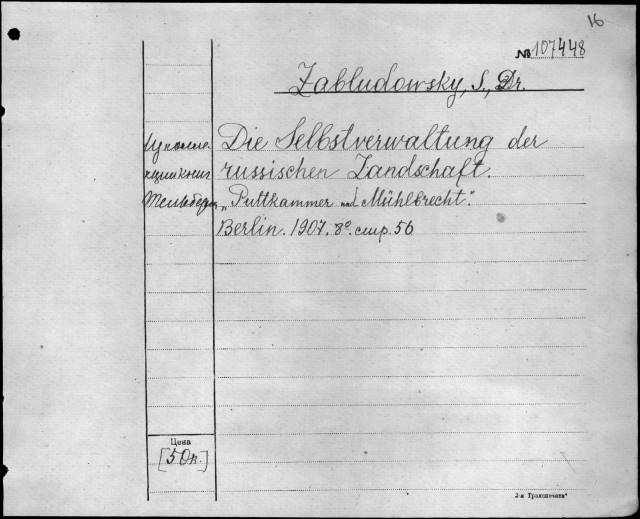 16
№ 107448
Zabludowsky, S., Dr.
Die Selbstverwaltung der
russischen Landschaft.
„Puttkammer und Mühlbrecht“.
Berlin. 1907. 8º. стр. 56
Цена
[50к.]